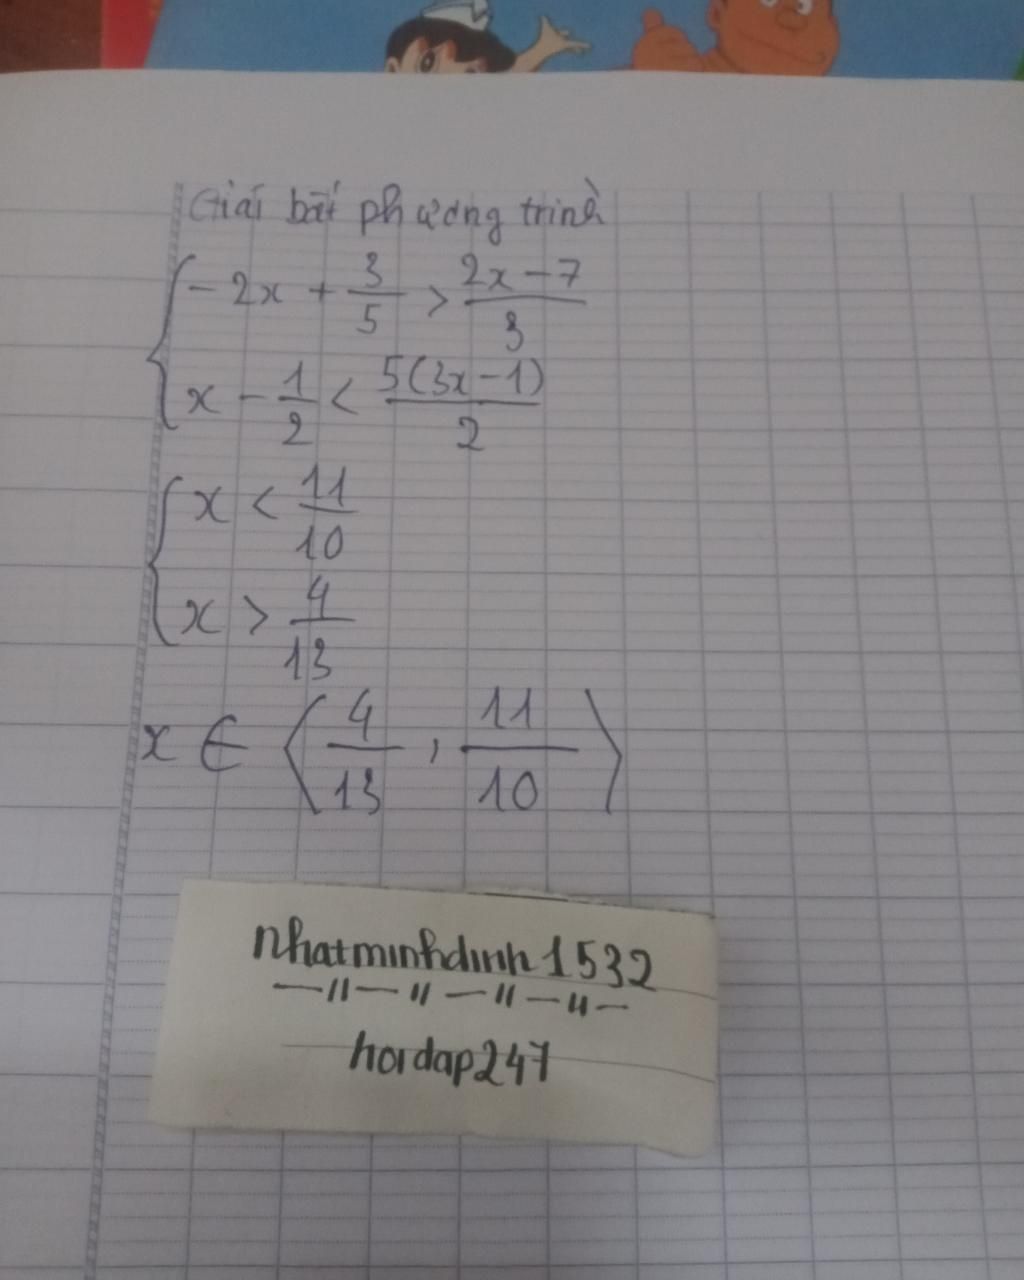 Giải bất phương trình
{ -2x + 3/5 > (2x-7)/3
x - 1/2 < 5(3x-1)/2
{ x < 11/10
x > 4/13
x ∈ ⟨4/13, 11/10⟩
nhatminhdinh1532
—"—"—"—"—
hoidap247